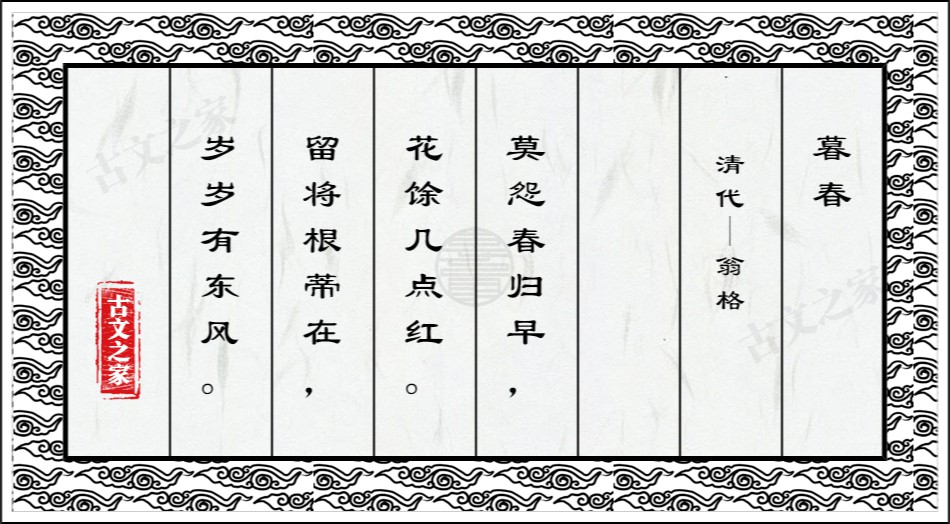 暮春
清代—翁格
莫怨春归早，
花馀几点红。
留将根蒂在，
岁岁有东风。
古文之家
古文之家
古文之家